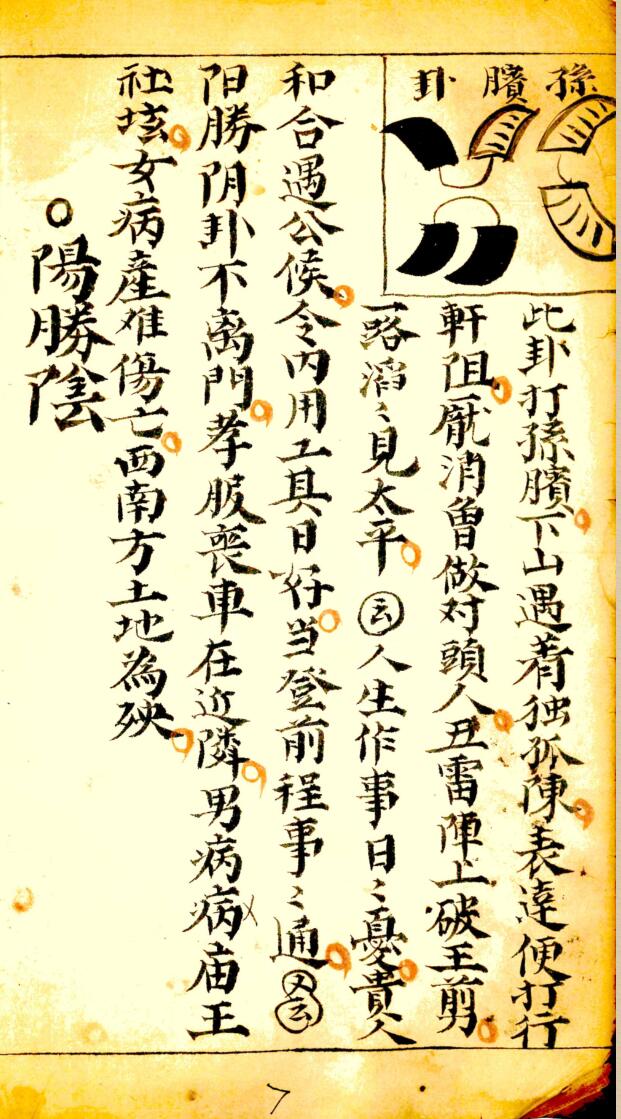 孫臏卦
此卦打孫臏下山遇着独孤陳表達便打行
軒阻厭消曾做对頭人丑雷陣上破王剪
一路滔〻見太平云人生作事日〻憂貴人
和合遇公候令内用工具日好当登前程事〻通又云
阳勝阴卦不离門孝服丧車在近隣男病病庙王
社坛女病產难傷亡西南方土地為殃
陽勝陰
7